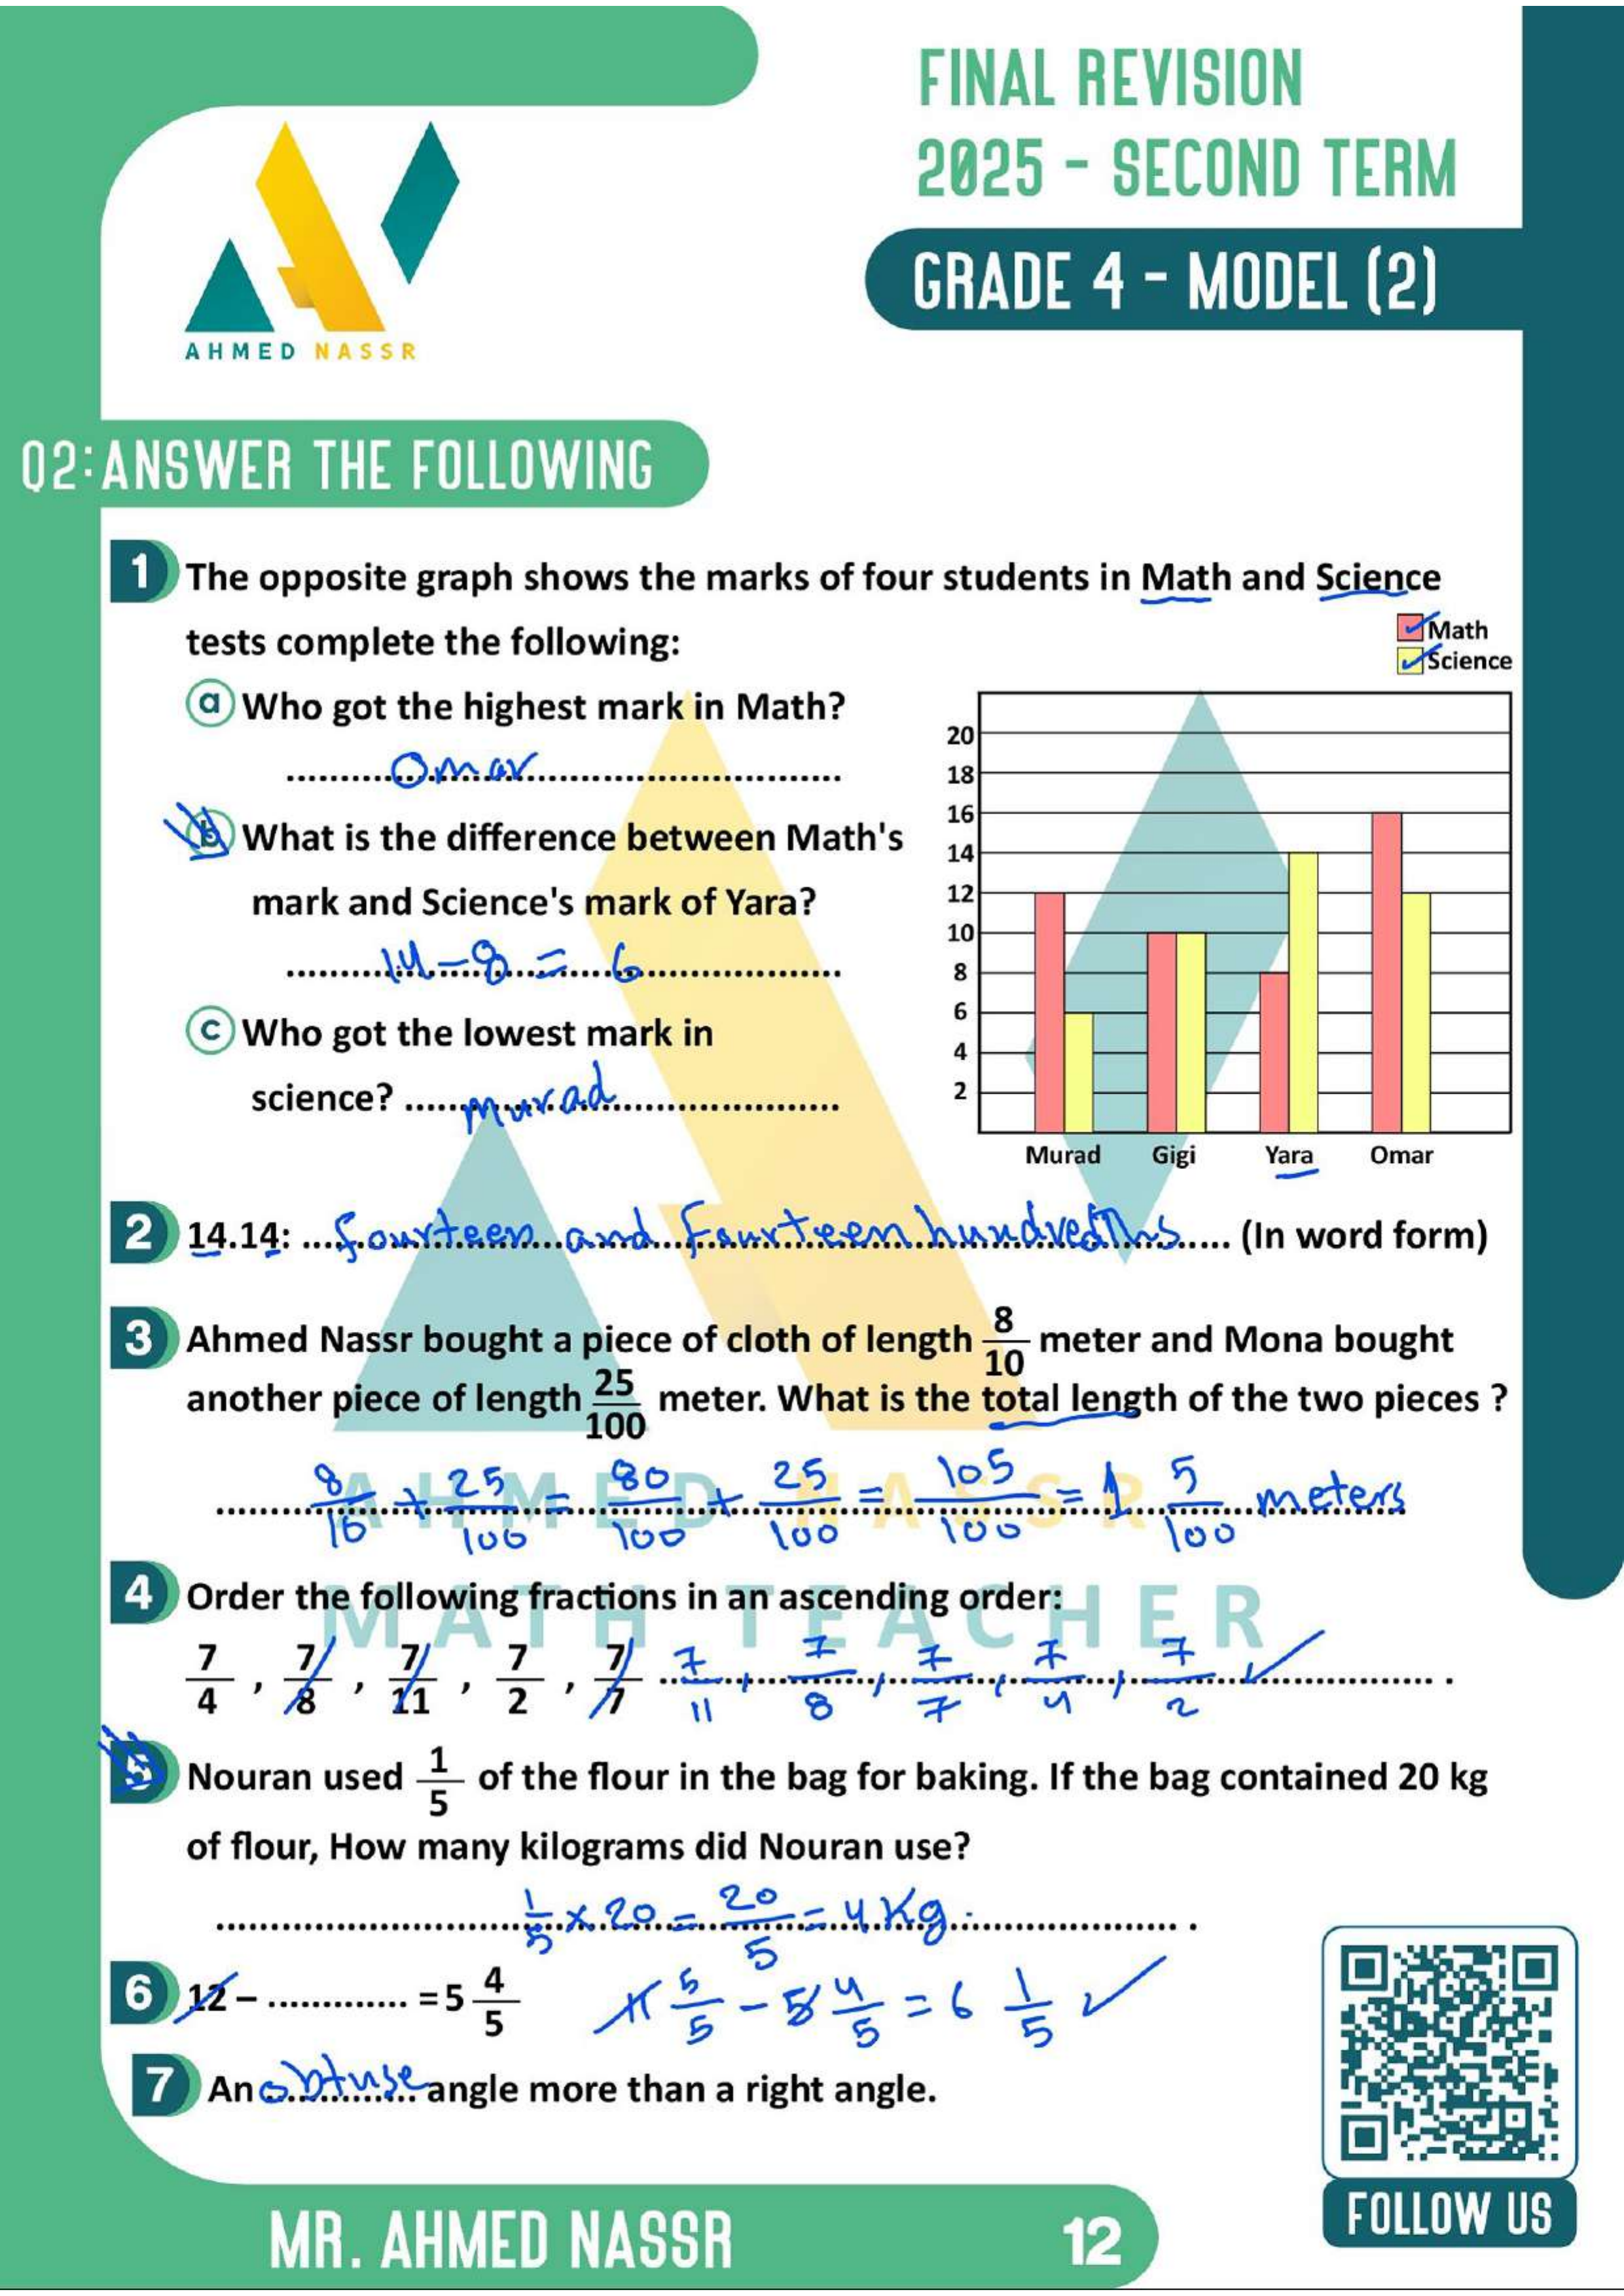 FINAL REVISION
2025 - SECOND TERM
GRADE 4 - MODEL (2)
AHMED NASSR
Q2:ANSWER THE FOLLOWING
1 The opposite graph shows the marks of four students in Math and Science
tests complete the following:
Math
Science
a Who got the highest mark in Math?
Omar
b What is the difference between Math's
mark and Science's mark of Yara?
14 - 8 = 6
c Who got the lowest mark in
science? Murad
20
18
16
14
12
10
8
6
4
2
Murad Gigi Yara Omar
2 14.14: Fourteen and Fourteen hundredths (In word form)
3 Ahmed Nassr bought a piece of cloth of length 8/10 meter and Mona bought
another piece of length 25/100 meter. What is the total length of the two pieces ?
8/10 + 25/100 = 80/100 + 25/100 = 105/100 = 1 5/100 meters
AHMED NASSR
MATH TEACHER
4 Order the following fractions in an ascending order:
7/4 , 7/8 , 7/11 , 7/2 , 7/7 7/11 , 7/8 , 7/7 , 7/4 , 7/2 .
5 Nouran used 1/5 of the flour in the bag for baking. If the bag contained 20 kg
of flour, How many kilograms did Nouran use?
1/5 × 20 = 20/5 = 4 Kg.
6 12 – ............. = 5 4/5 11 5/5 - 5 4/5 = 6 1/5
7 An obtuse angle more than a right angle.
MR. AHMED NASSR
12
FOLLOW US